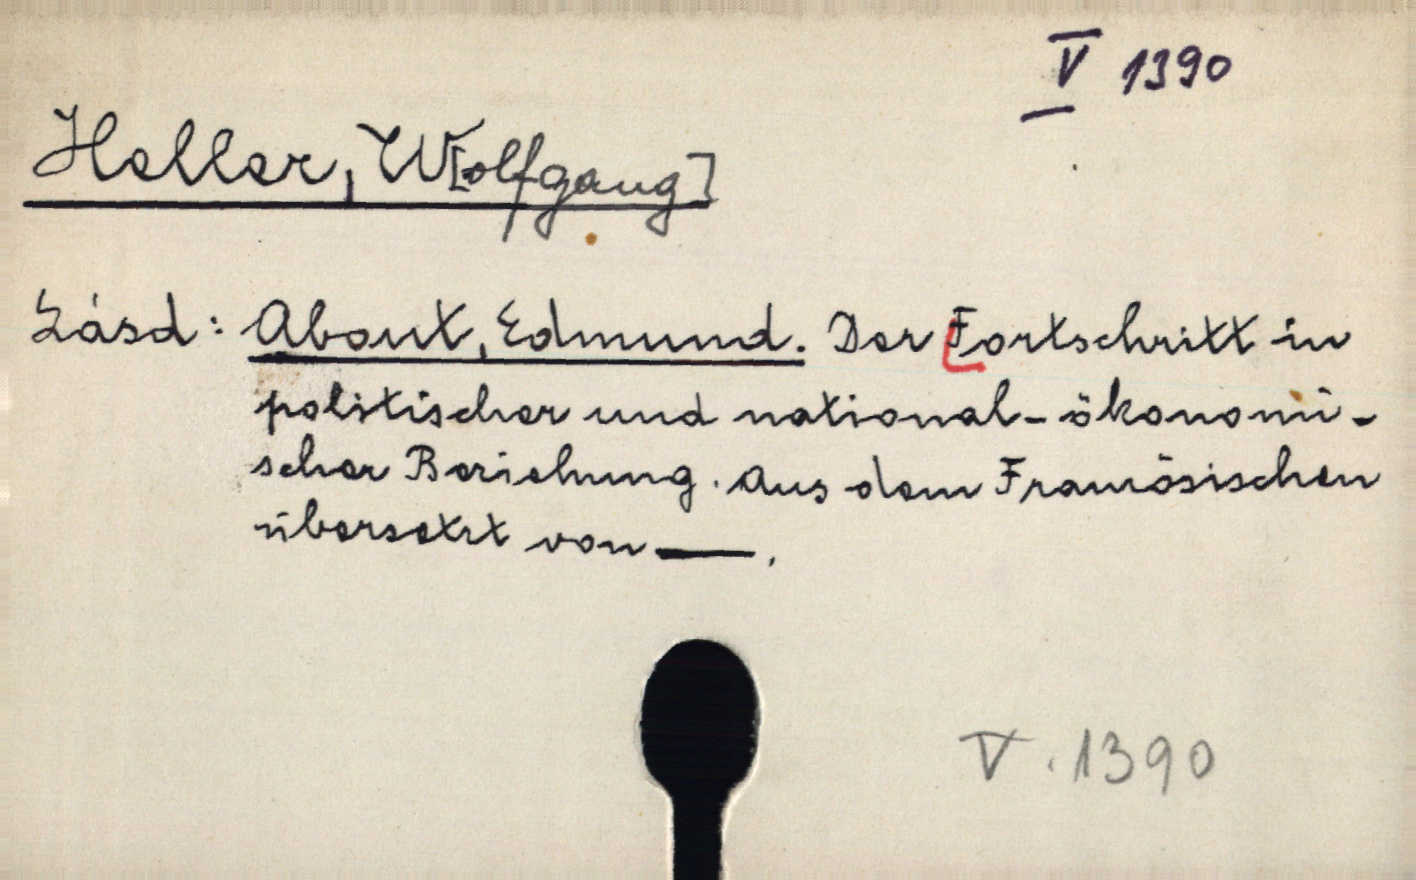 V 1390
Heller, W[olfgang]
Lásd: About, Edmund. Der Fortschritt in
politischer und national-ökonomi-
scher Beziehung. Aus dem Französischen
übersetzt von —.
V. 1390